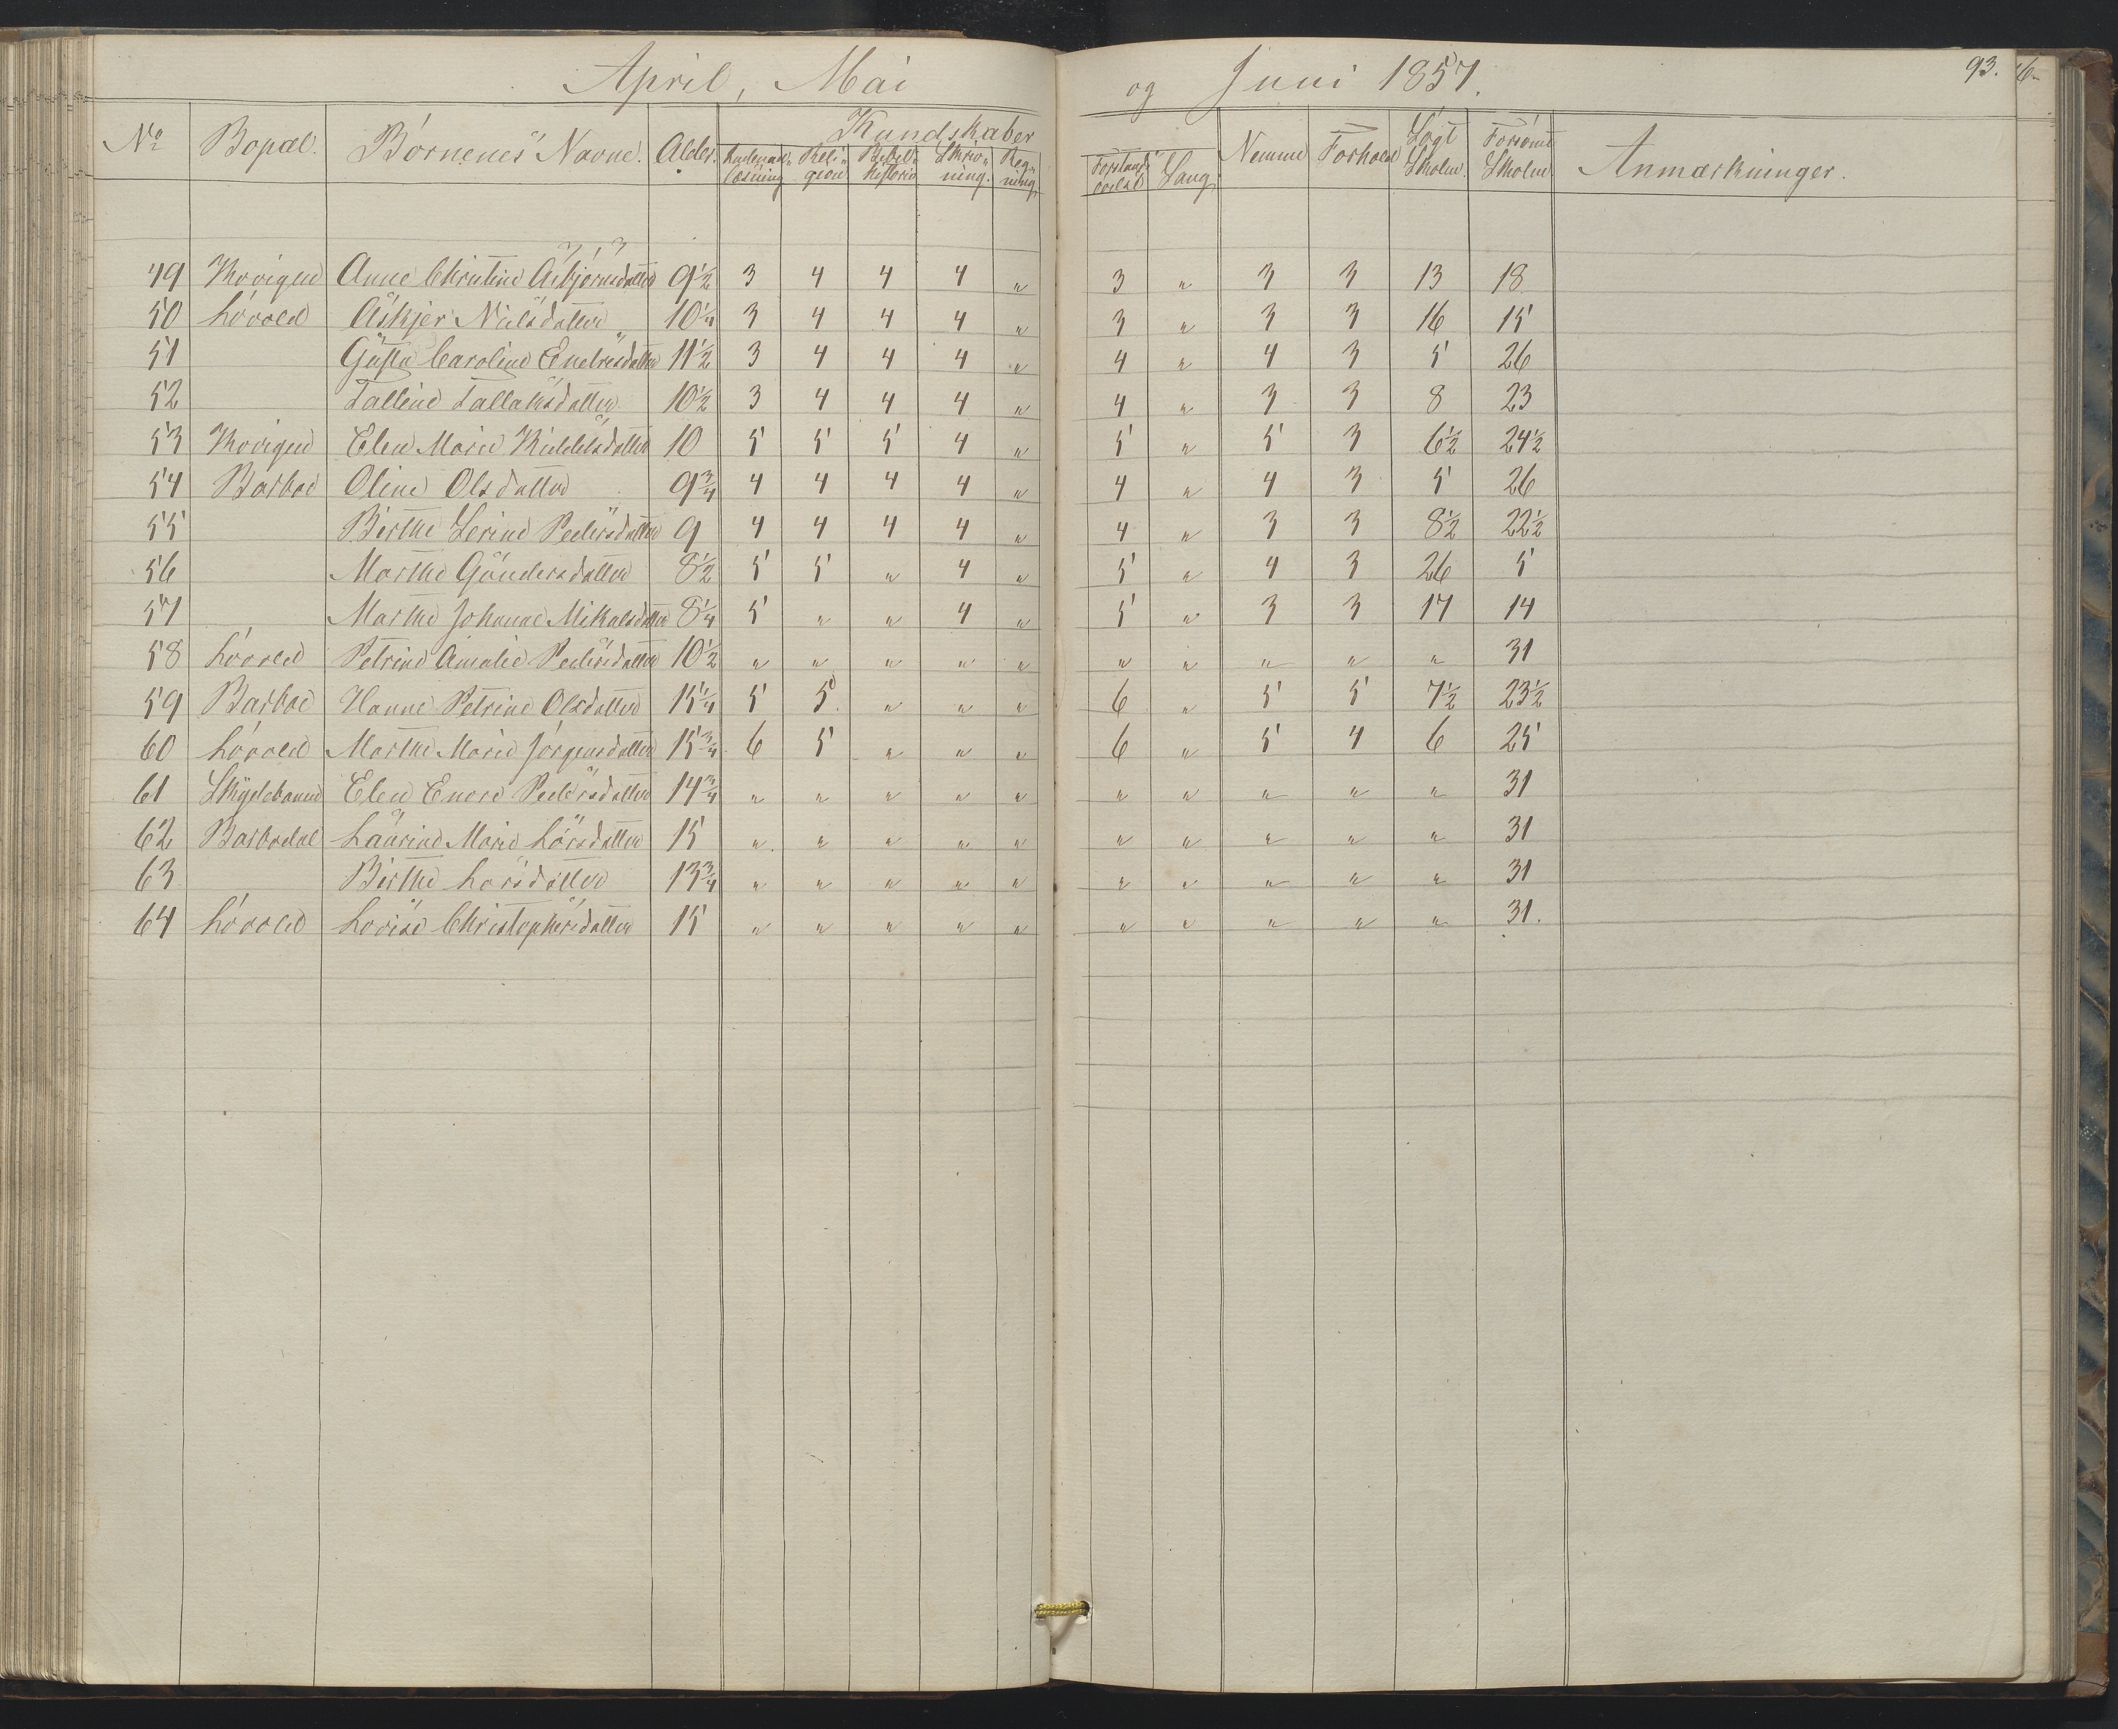 April, Mai og Juni 1857. 93.
Kundskaber
No Bopæl. Børnenes Navne. Alder. Indenad-læsning Reli-gion Bibel-historie Skriv-ning. Reg-ning. Sang. Nemme Forhold Søgt Skolen. Forsømt Skolen. Anmærkninger.
49 Anne Christine Asbjørnsdatter 9 1/2 3 4 4 4 " 3 " 3 3 13 18
50 Løvold Askjer Nielsdatter 10 1/4 3 4 4 4 " 3 " 3 3 16 15
51 Gusta Caroline Endresdatter 11 1/2 3 4 4 4 " 4 " 4 3 5 26
52 Talline Tallaksdatter 10 1/2 3 4 4 4 " 4 " 3 3 8 23
53 Elen Marie 10 5 5 5 4 " 5 " 5 3 6 1/2 24 1/2
54 Barboe Oline Olsdatter 9 3/4 4 4 4 4 " 4 " 4 3 5 26
55 Birthe Serine Pedersdatter 9 4 4 4 4 " 4 " 3 3 8 1/2 22 1/2
56 Marthe Gundersdatter 8 1/2 5 5 " 4 " 5 " 4 3 26 5
57 Marthe Johanne Mikalsdatter 8 1/4 5 " " 4 " 5 " 3 3 17 14
58 Løvold Petrine Amalie Pedersdatter 10 1/2 " " " " " " " " " " 31
59 Barboe Hanne Petrine Olsdatter 15 1/4 5 5 " " " 6 " 5 5 7 1/2 23 1/2
60 Løvold Marthe Marie Jørgensdatter 15 3/4 6 5 " " " 6 " 5 4 6 25
61 Skydebanen Elen Enore Pedersdatter 14 3/4 " " " " " " " " " " 31
62 Barbodal Laurine Marie Larsdatter 15 " " " " " " " " " " 31
63 Birthe Larsdatter 13 3/4 " " " " " " " " " " 31
64 Løvold Lovise Christophersdatter 15 " " " " " " " " " " 31.